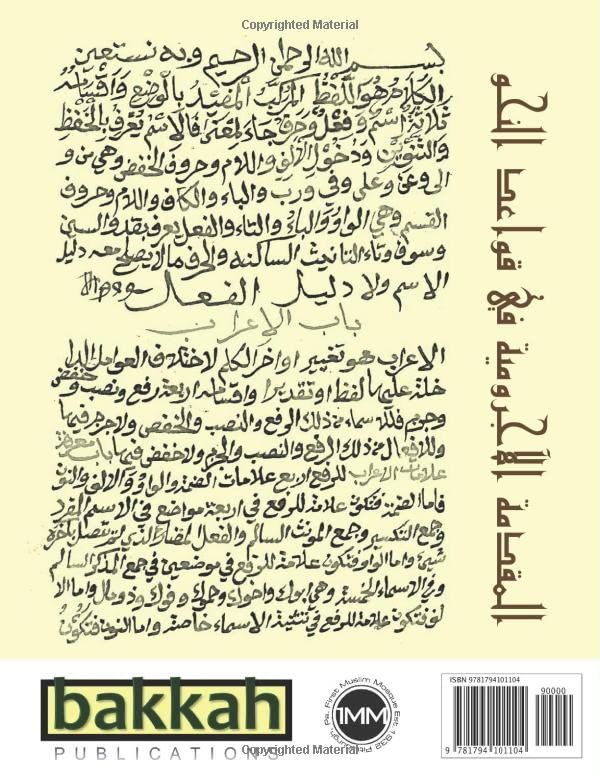 Copyrighted Material
بسم الله الرحمن الرحيم وبه نستعين
الكلام هو اللفظ المركب المفيد بالوضع واقسامه
ثلاثة اسم وفعل وحرف جاء لمعنى فالاسم يعرف بالخفض
والتنوين ودخول الالف واللام وحروف الخفض وهي من و
الى وعن وعلى وفي ورب والباء والكاف واللام وحروف
القسم وهي الواو والباء والتاء والفعل يعرف بقد والسين
وسوف وتاء التانيث الساكنه والحرف ما لا يصلح معه دليل
الاسم ولا دليل الفعل
باب الاعراب
الاعراب هو تغيير اواخر الكلم لاختلاف العوامل الدا
خلة عليها لفظا او تقديرا واقسامه اربعة رفع ونصب و خفض
وجزم فللاسماء من ذلك الرفع والنصب والخفض ولا جزم فيها
وللافعال من ذلك الرفع والنصب والجزم ولا خفض فيها باب معرفة
علامات الاعراب للرفع اربع علامات الضمة والواو والالف والنون
فاما الضمة فتكون علامة للرفع في اربعة مواضع في الاسم المفرد
وجمع التكسير وجمع المونث السالم والفعل المضارع الذي لم يتصل باخره
شيئ واما الواو فتكون علامة للرفع في موضعين في جمع المذكر السالم
وفي الاسماء الخمسة وهي ابوك واخوك وحموك وفوك وذو مال واما الا
لف فتكون علامة للرفع في تثنية الاسماء خاصة واما النون فتكون
المقدمة الأجرومية في قواعد النحو
bakkah
PUBLICATIONS
Pa. First Muslim Mosque Est. 1932 Pittsburgh,
1MM
ISBN 9781794101104
90000
9 781794 101104
Copyrighted Material